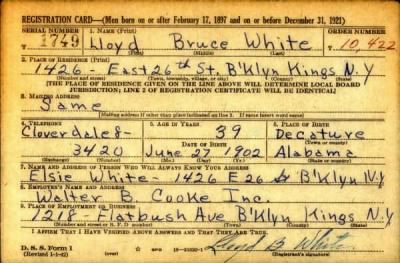 REGISTRATION CARD—(Men born on or after February 17, 1897 and on or before December 31, 1921)
SERIAL NUMBER 1. NAME (Print) ORDER NUMBER
1749 Lloyd Bruce White 10,422
(First) (Middle) (Last)
2. PLACE OF RESIDENCE (Print)
1426 - East 26th St. B'Klyn Kings N.Y
(Number and street) (Town, township, village, or city) (County) (State)
[THE PLACE OF RESIDENCE GIVEN ON THE LINE ABOVE WILL DETERMINE LOCAL BOARD
JURISDICTION; LINE 2 OF REGISTRATION CERTIFICATE WILL BE IDENTICAL]
3. MAILING ADDRESS
Same
[Mailing address if other than place indicated on line 2. If same insert word same]
4. TELEPHONE 5. AGE IN YEARS 6. PLACE OF BIRTH
Cloverdale 8- 39 Decature
DATE OF BIRTH (Town or county)
3420 June 27 1902 Alabama
(Exchange) (Number) (Mo.) (Day) (Yr.) (State or country)
7. NAME AND ADDRESS OF PERSON WHO WILL ALWAYS KNOW YOUR ADDRESS
Elsie White - 1426 E 26 St B'Klyn N.Y
8. EMPLOYER'S NAME AND ADDRESS
Walter B. Cooke Inc.
9. PLACE OF EMPLOYMENT OR BUSINESS
1218 - Flatbush Ave B'Klyn Kings N.Y
(Number and street or R. F. D. number) (Town) (County) (State)
I AFFIRM THAT I HAVE VERIFIED ABOVE ANSWERS AND THAT THEY ARE TRUE.
D. S. S. Form 1
(Revised 1-1-42) Lloyd B White
(Registrant's signature)